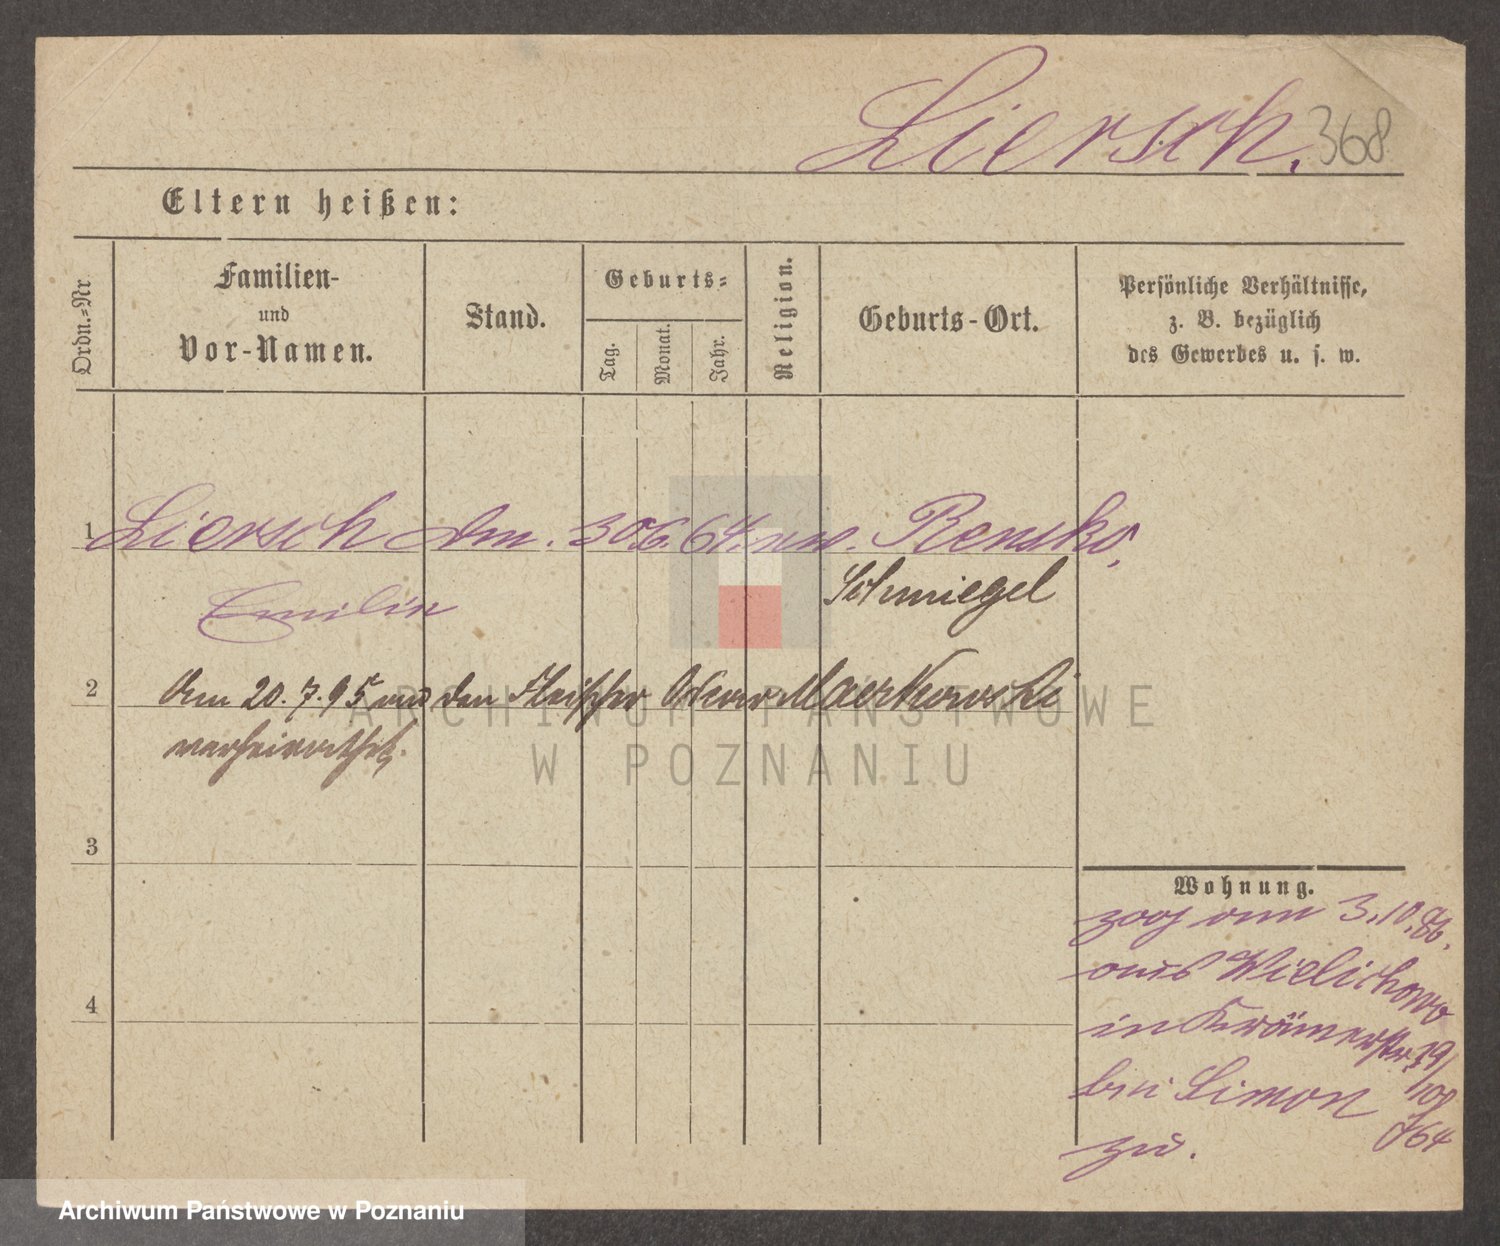 Liersch. 368
Eltern heißen:
Ordn.=Nr
Familien-
und
Vor-Namen.
Stand.
Geburts=
Tag.
Monat.
Jahr.
Religion.
Geburts-Ort.
Persönliche Verhältnisse,
z. B. bezüglich
des Gewerbes u. s. w.
1 Liersch 30.6.64. Rensko,
Schmiegel
Emilie
2 Am 20.7.95 den Fleischer Markowski
verheirathet.
3
4
Wohnung.
zog am 3.10.86.
aus Wielichowo
in Krämerstr. 19/
bei Simon
zu.
ARCHIWUM PAŃSTWOWE
W POZNANIU
Archiwum Państwowe w Poznaniu